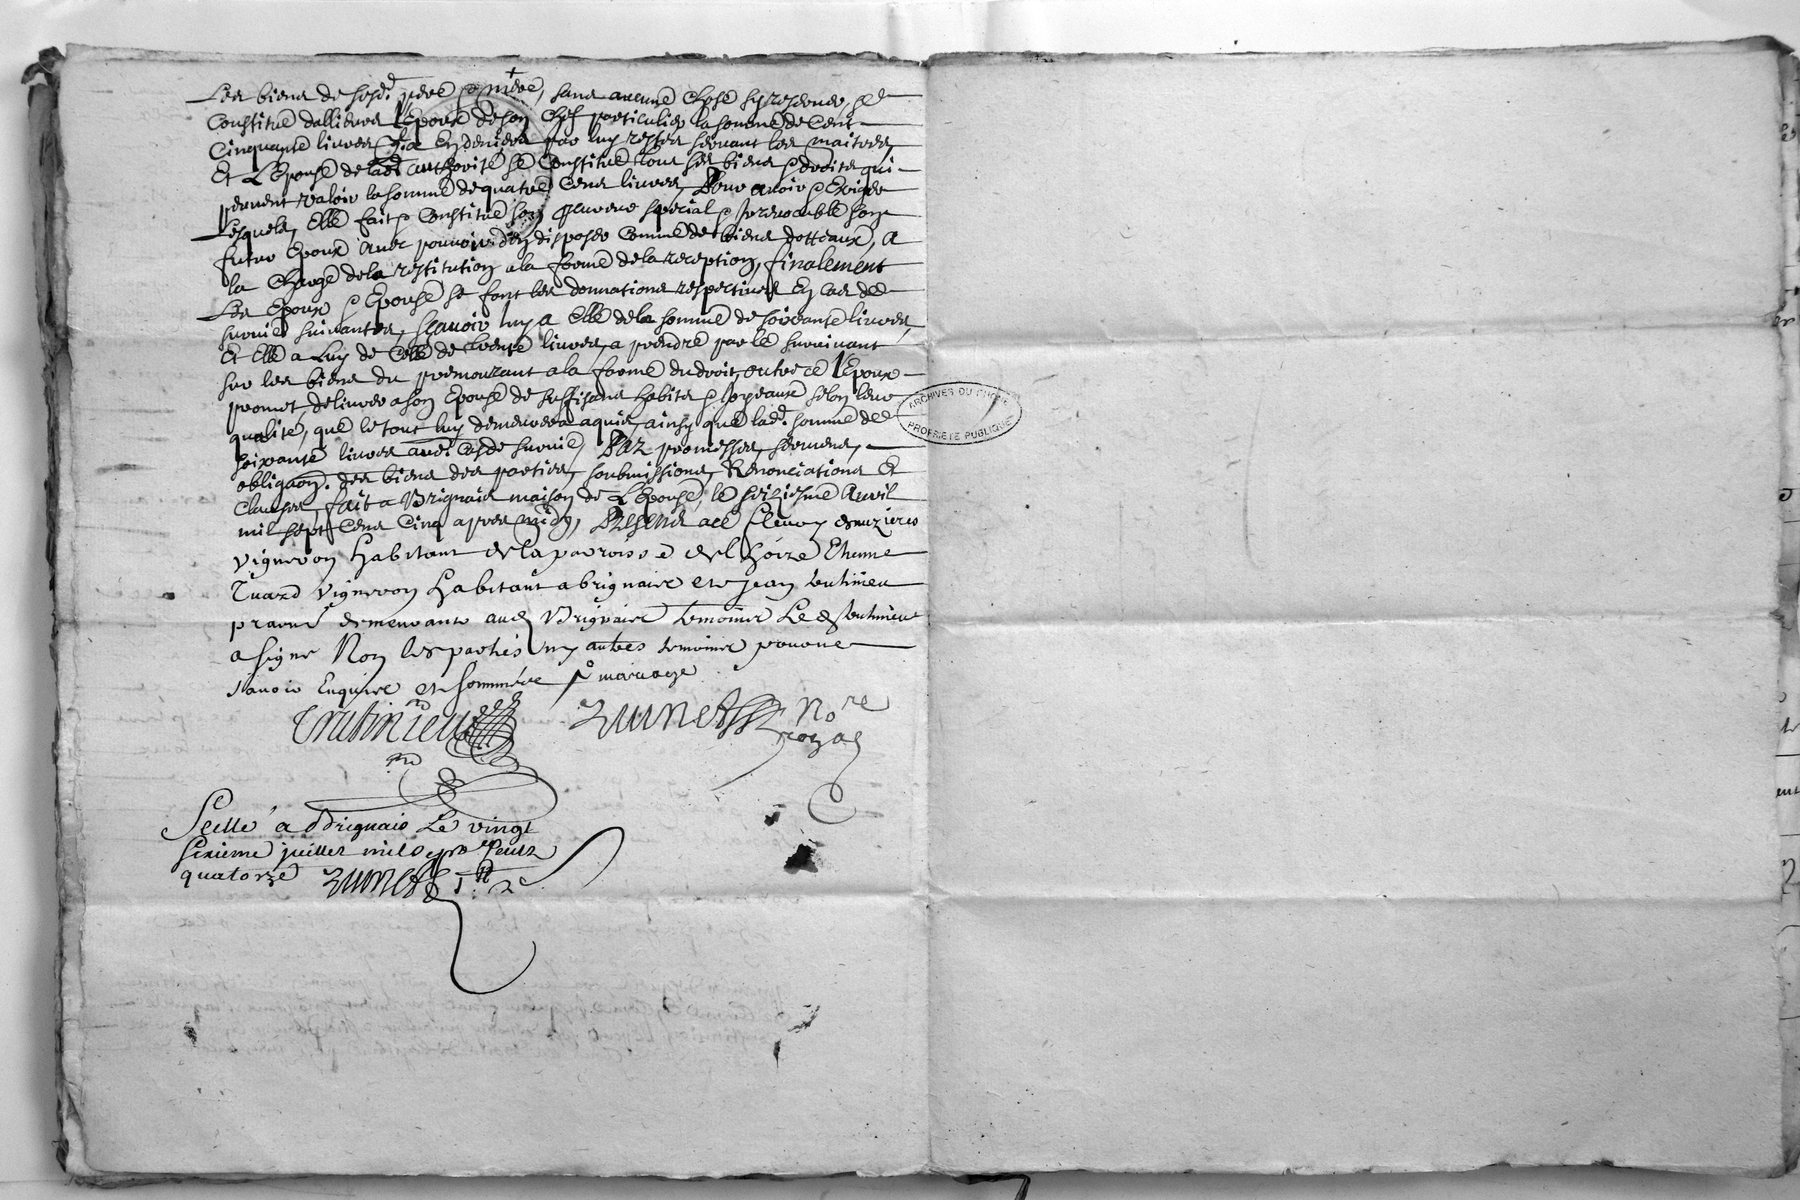 Les biens de sesd. pere et mere, sans aucune chose sy reserver, Et
Constitue dallieurs L'Epoux de son chef particulier la somme de Cent
Cinquante livres En deniers par luy restes servant les maitres,
Et L'Epouse de lad. authorité se Constitue tous ses biens et droits qui
peuvent valoir la somme de quatre Cens livres, Pour avoir et Exiger
Lesquels, Elle fait et Constitue son procureur special et Irrevocable son
futur Epoux avec pouvoir den disposer Comme de biens dotteaux, A
la Charge de la restitution a la forme de la reception, finalement
Les Epoux et Epouse se font les donnations respectives En cas de
survie suivantes, sçavoir luy a Elle de la somme de soixante livres,
Et Elle a Luy de Celle de trente livres, a prendre par le survivant
sur les biens du premourant a la forme du droit, outre ce L'Epoux
promet, delivrer a son Epouse de suffisans habits et Joyeaux selon leur
qualité, que le tout luy demeurera aquis, ainsy que lad. somme de
soixante livres aud. cas de survie, Par promesses, sermens,
obligaon. des biens des parties, soubmissions, Renonciations Et
Clauses, fait a Brignais maison de L'Epouse, le seiziesme Avril
mil sept Cens Cinq apres midy, Presens a ce fleury
vigneron habitant de la parroisse de Etienne
vigneron habitant a brignais et jean
demeurant aud. Brignais temoins Le d.
a signé Non les parties ny autres temoins pour ne
scavoir Enquis et sommés pr mariage
Nore
royal
Scellé a Brignais Le vingt
sixieme juillet mil sept Cents
quatorze
ARCHIVES DU RHÔNE
PROPRIÉTÉ PUBLIQUE